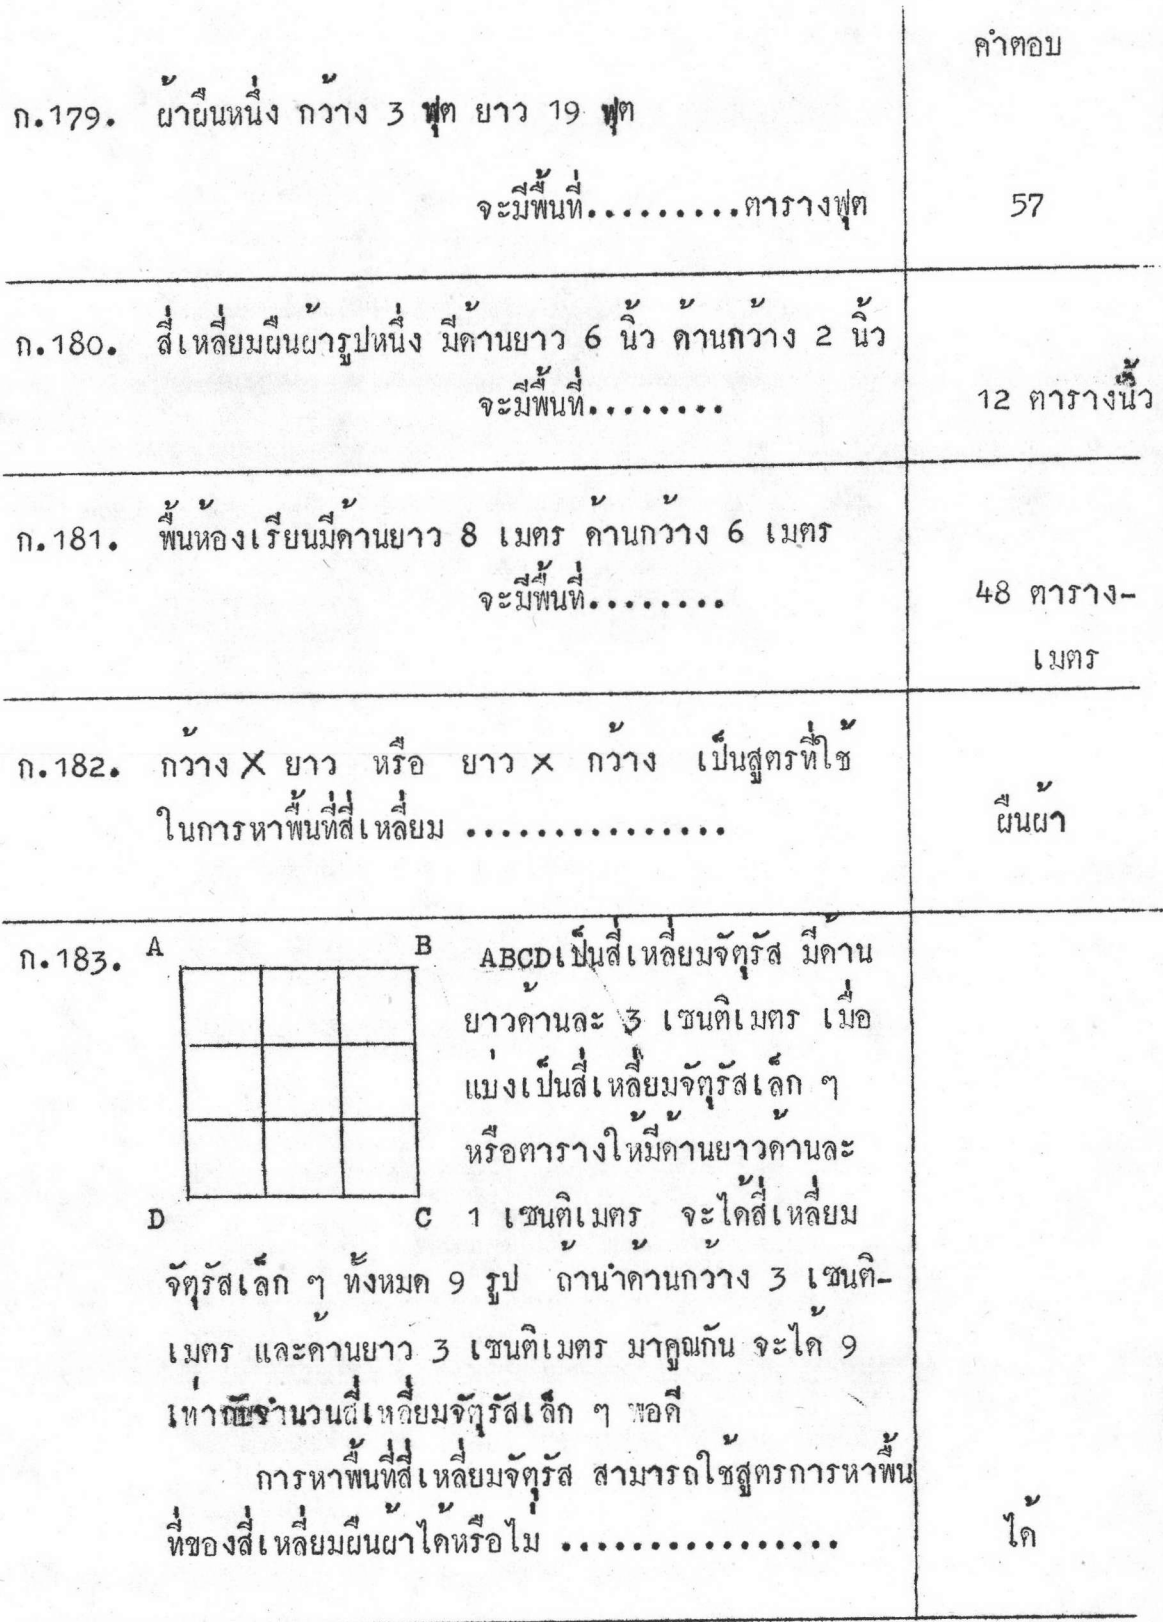 คำตอบ
ก.179. ผ้าผืนหนึ่ง กว้าง 3 ฟุต ยาว 19 ฟุต
จะมีพื้นที่.........ตารางฟุต 57
ก.180. สี่เหลี่ยมผืนผ้ารูปหนึ่ง มีด้านยาว 6 นิ้ว ด้านกว้าง 2 นิ้ว
จะมีพื้นที่........ 12 ตารางนิ้ว
ก.181. พื้นห้องเรียนมีด้านยาว 8 เมตร ด้านกว้าง 6 เมตร
จะมีพื้นที่........ 48 ตาราง-
เมตร
ก.182. กว้าง X ยาว หรือ ยาว x กว้าง เป็นสูตรที่ใช้
ในการหาพื้นที่สี่เหลี่ยม ............... ผืนผ้า
ก.183. A B ABCDเป็นสี่เหลี่ยมจัตุรัส มีด้าน
ยาวด้านละ 3 เซนติเมตร เมื่อ
แบ่งเป็นสี่เหลี่ยมจัตุรัสเล็ก ๆ
หรือตารางให้มีด้านยาวด้านละ
D C 1 เซนติเมตร จะได้สี่เหลี่ยม
จัตุรัสเล็ก ๆ ทั้งหมด 9 รูป ถ้านำด้านกว้าง 3 เซนติ-
เมตร และด้านยาว 3 เซนติเมตร มาคูณกัน จะได้ 9
เท่ากับจำนวนสี่เหลี่ยมจัตุรัสเล็ก ๆ พอดี
การหาพื้นที่สี่เหลี่ยมจัตุรัส สามารถใช้สูตรการหาพื้น
ที่ของสี่เหลี่ยมผืนผ้าได้หรือไม่ ................ ได้